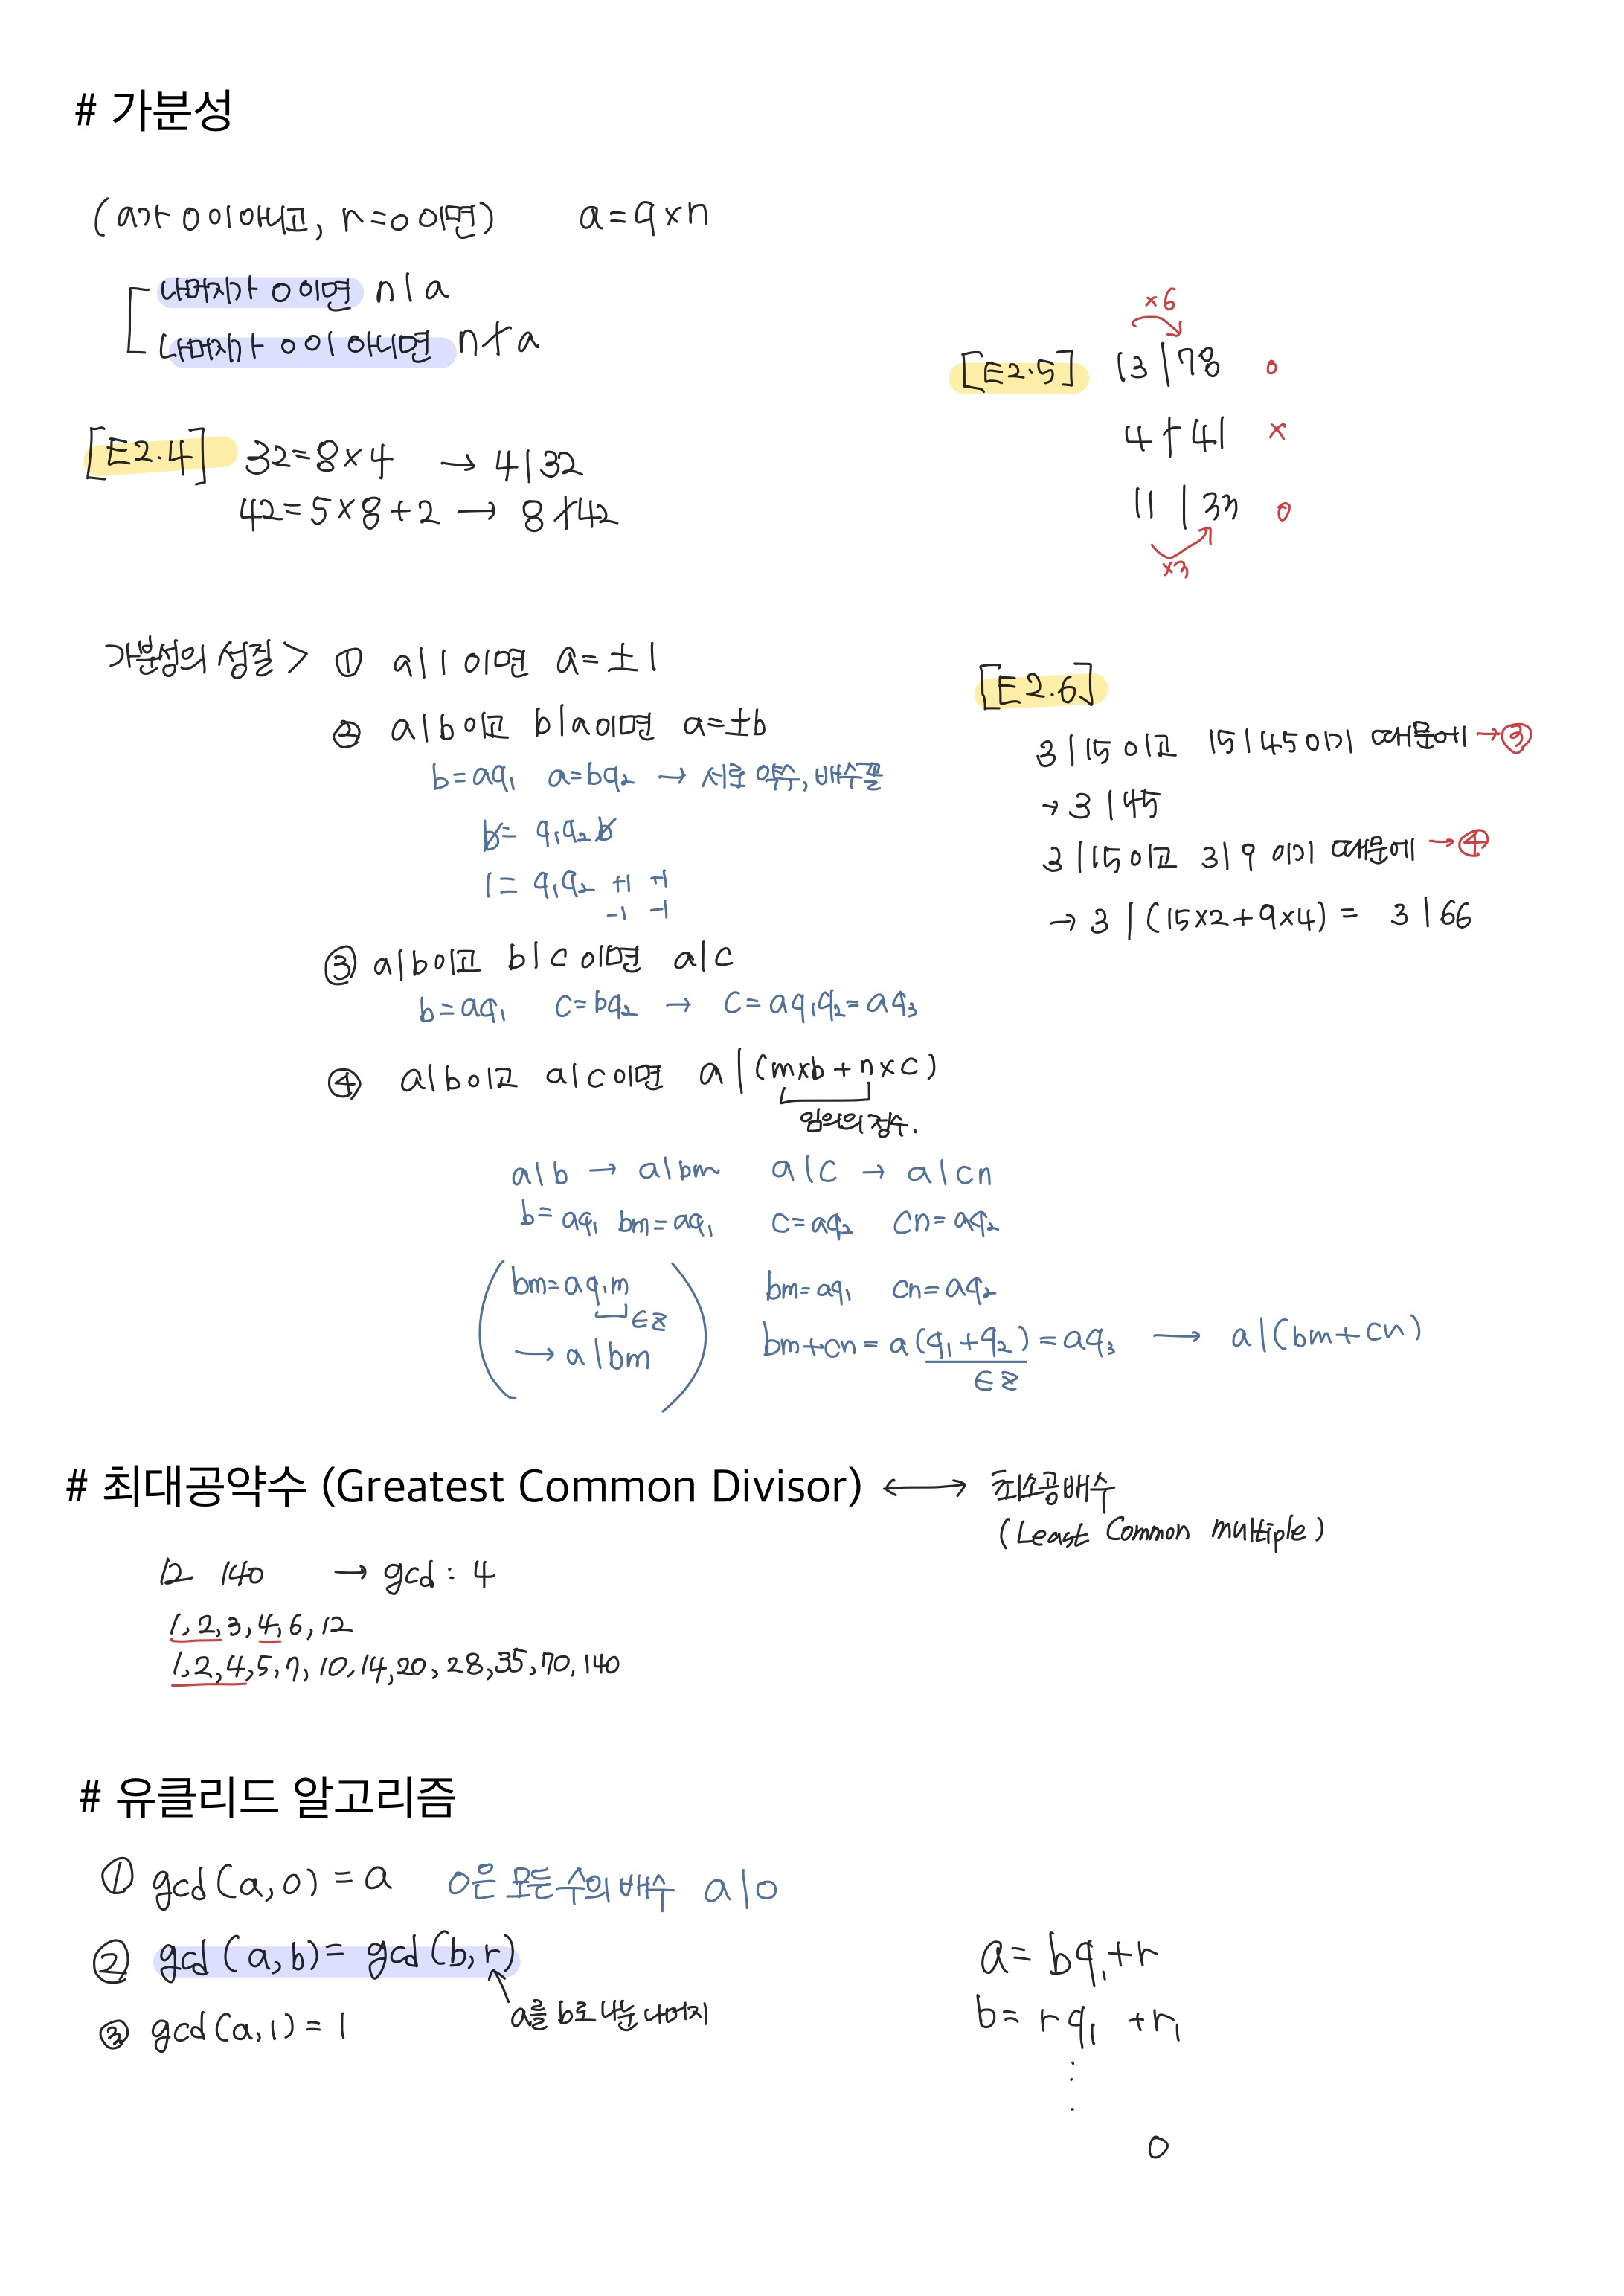 # 가분성
(a가 0이 아니고, r=0 이면) a=q×n
나머지가 0 이면 n|a
나머지가 0이 아니면 n∤a
[E2.4] 32=8×4 → 4|32
42=5×8+2 → 8∤42
×6
[E2.5] 13|78 o
4∤41 x
11|33 o
×3
가분성의 성질> ① a|1 이면 a=±1
② a|b이고 b|a이면 a=±b
b=aq₁ a=bq₂ → 서로 약수, 배수꼴
b= q₁q₂b
1= q₁q₂ +1 +1
-1 -1
③ a|b이고 b|c이면 a|c
b=aq₁ c=bq₂ → c=aq₁q₂=aq₃
④ a|b이고 a|c이면 a|(m×b+n×c)
임의의 정수.
a|b → a|bm a|c → a|cn
b=aq₁ bm=aq₁ c=aq₂ cn=aq₂
(bm=aq₁m
∈ℤ
→ a|bm)
bm=aq₁ cn=aq₂
bm+cn=a(q₁+q₂)=aq₃ → a|(bm+cn)
∈ℤ
[E2.6]
3|15이고 15|45이기 때문에 →③
→ 3|45
3|15이고 3|9 이기 때문에 →④
→ 3|(15×2+9×4) = 3|66
# 최대공약수 (Greatest Common Divisor) ↔ 최소공배수
(Least Common Multiple)
12 140 → gcd : 4
1,2,3,4,6,12
1,2,4,5,7,10,14,20,28,35,70,140
# 유클리드 알고리즘
① gcd(a,0)=a 0은 모든수의 배수 a|0
② gcd(a,b)=gcd(b,r)
a를 b로 나눈 나머지
③ gcd(a,1)=1
a=bq₁+r
b=rq₁+r₁
⋮
0